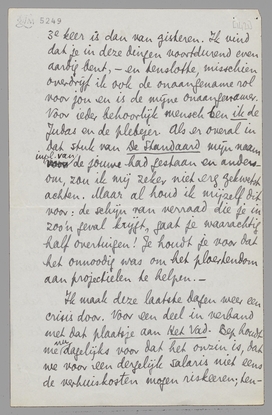 5249
3e keer is dan van gisteren. Ik vind
dat je in deze dingen voortdurend even
aardig bent, – en tenslotte, misschien
overdrijf ik ook de onaangename rol
voor jou en is de mijne onaangenamer.
Voor ieder behoorlijk mensch ben ik de
Judas en de plebejer. Als er overal in
dat stuk van De Standaard mijn naam
inpl. van
voor de jouwe had gestaan en anders-
om, zou ik mij zeker niet erg gekwetst
achten. Maar al houd ik mijzelf dit
voor: de schijn van verraad die je in
zoo'n geval krijgt, gaat je waarachtig
half overtuigen! Je houdt je voor dat
het onnoodig was om het ploertendom
aan projectielen te helpen. –
Ik maak deze laatste dagen weer een
crisis door. Voor een deel in verband
met dat plaatsje aan Het Vad. Bep houdt
me nu dagelijks voor dat het onzin is, dat
we voor een dergelijk salaris niet eens
de verhuiskosten mogen riskeeren; ten-